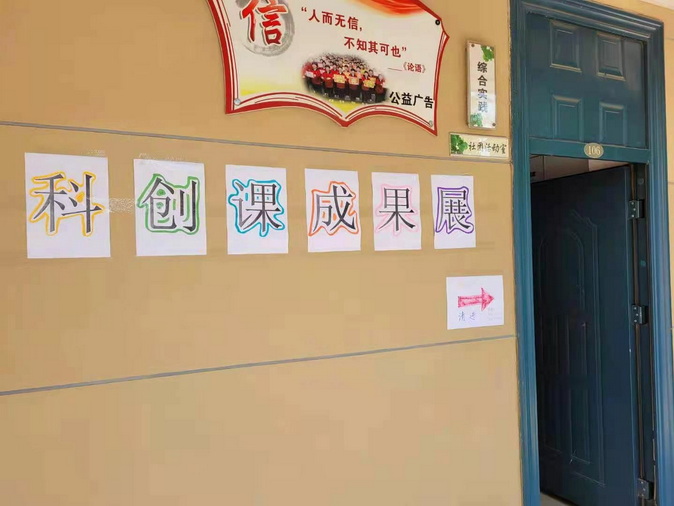 信
“人而无信，
不知其可也”
——《论语》
公益广告
综合实践
社团活动室
106
科创课成果展
请进